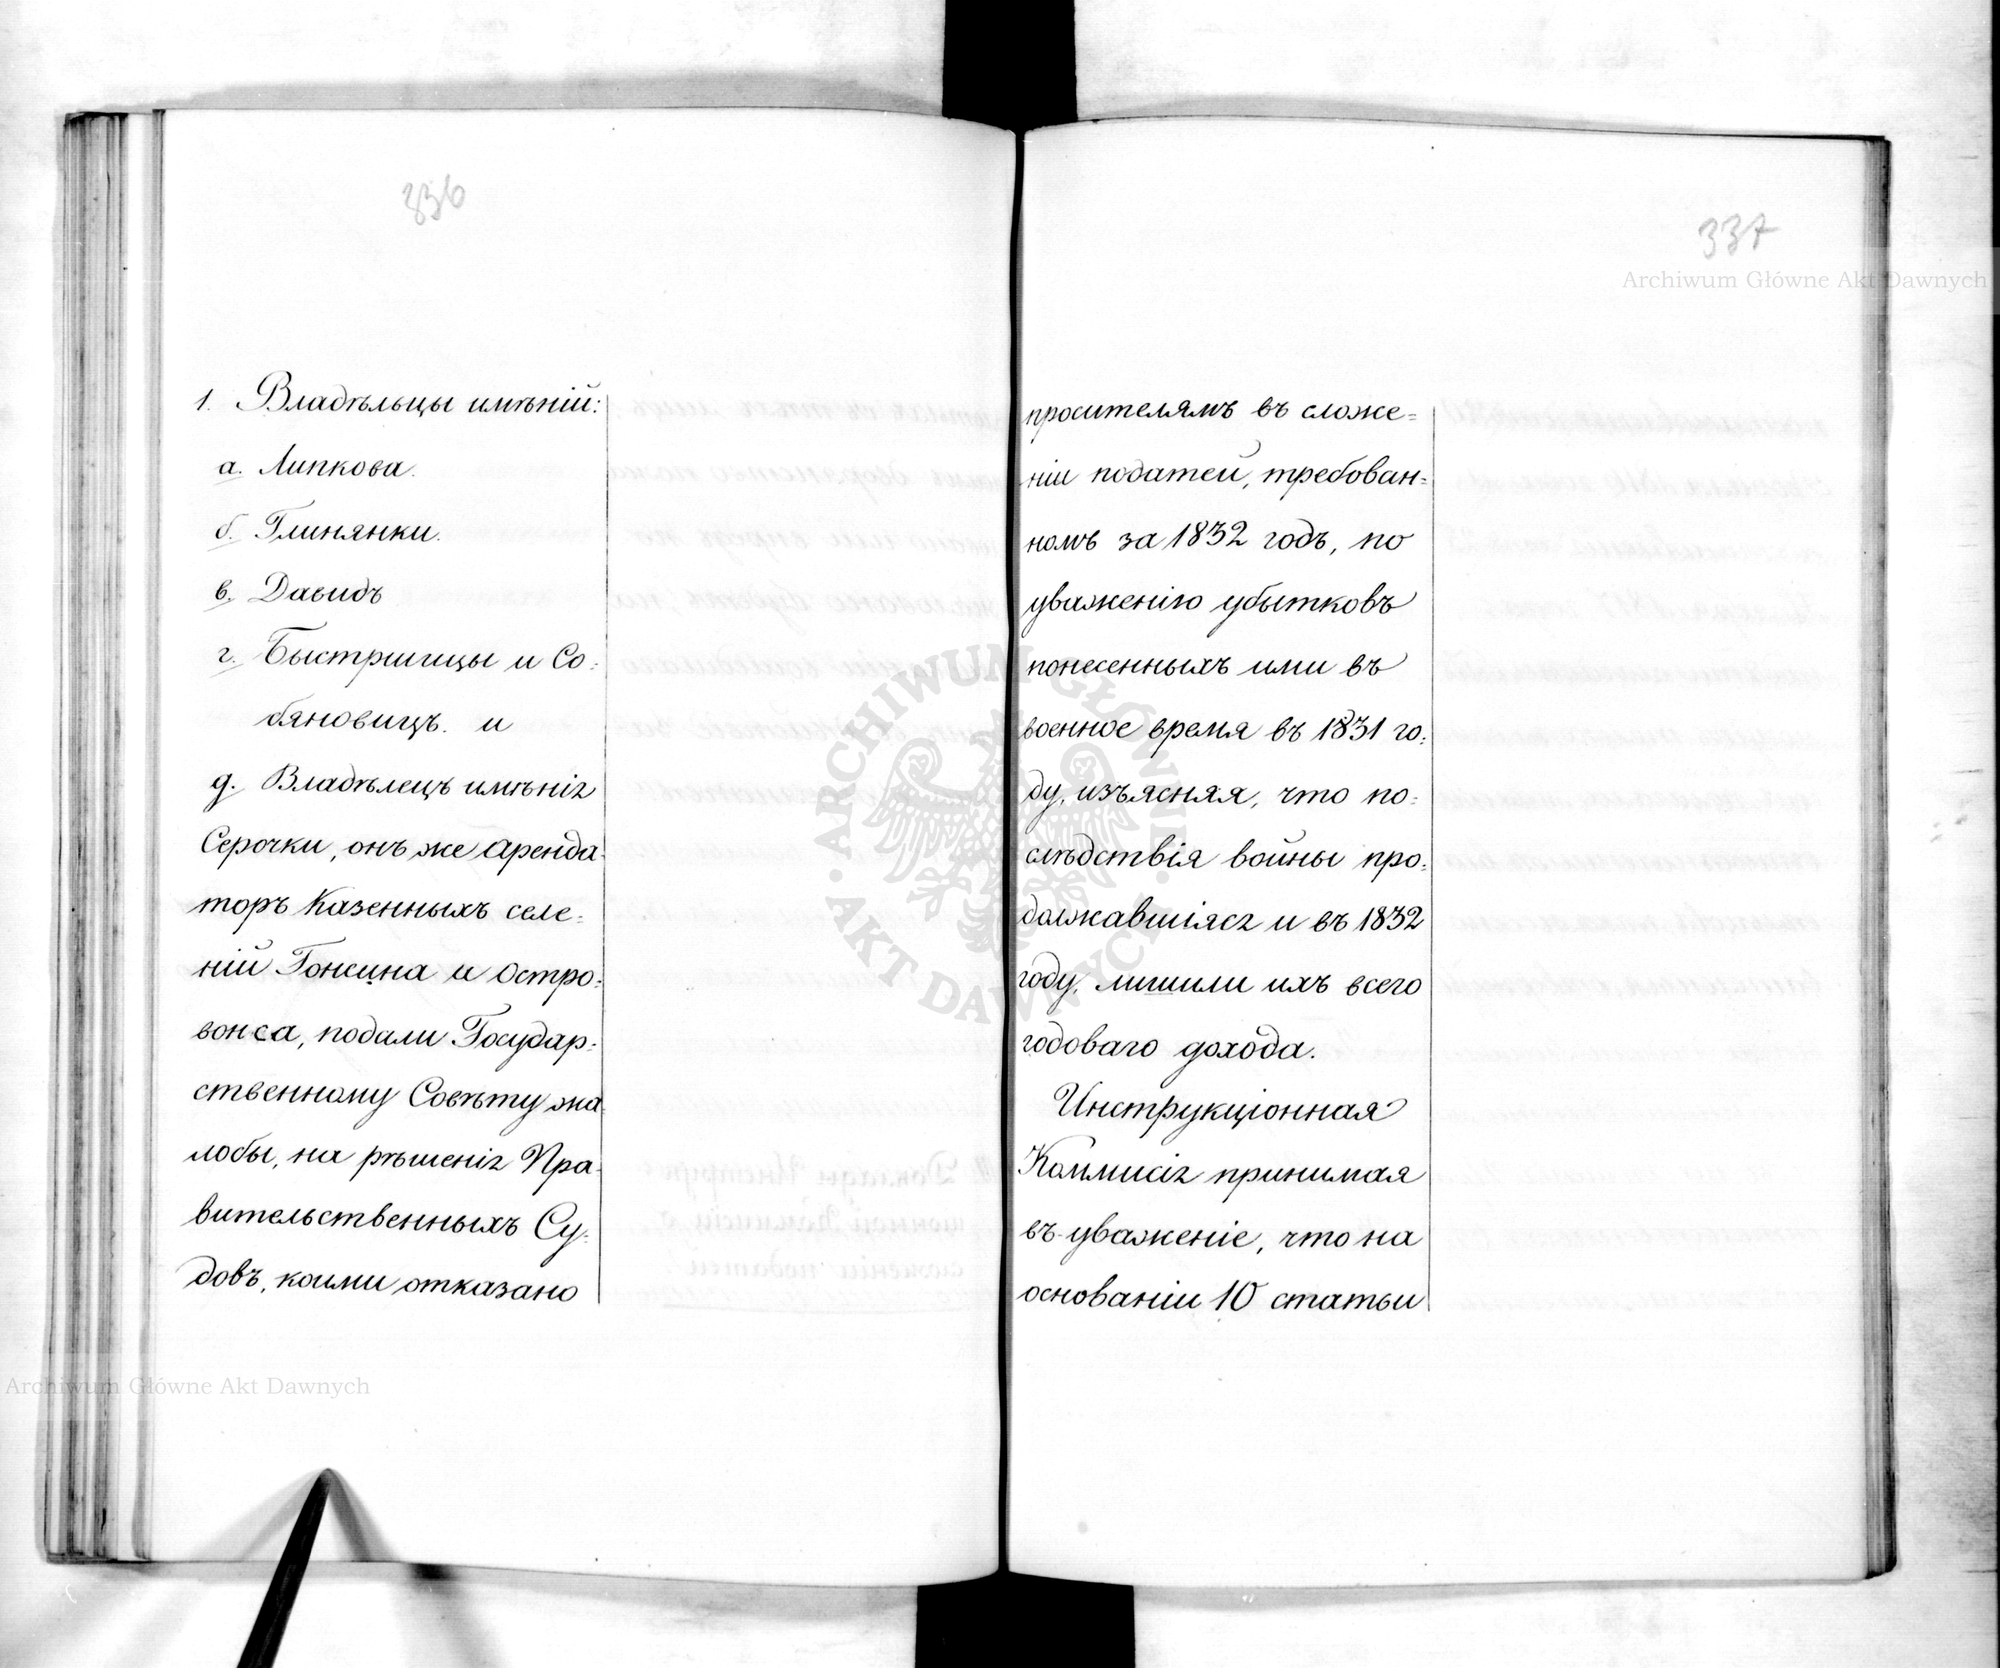 336
1. Владѣльцы имѣній:
а. Липкова.
б. Глинянки.
в. Давидъ
г. Быстршицы и Со=
бяновицъ. и
д. Владѣлецъ имѣнія
Серочки, онъ же Аренда=
торъ Казенныхъ селе=
ній Гонсина и Остро=
вонса, подали Государ=
ственному Совѣту жа=
лобы, на рѣшенія Пра=
вительственныхъ Су=
довъ, коими отказано
337
просителямъ въ сложе=
ніи податей, требован=
номъ за 1832 годъ, по
уваженію убытковъ
понесенныхъ ими въ
военное время въ 1831 го=
ду, изъясняя, что по=
слѣдствія войны про=
должавшіяся и въ 1832
году, лишили ихъ всего
годоваго дохода.
Инструкціонная
Коммисія принимая
въ уваженіе, что на
основаніи 10 статьи
Archiwum Główne Akt Dawnych
ARCHIWUM GŁÓWNE AKT DAWNYCH
Archiwum Główne Akt Dawnych